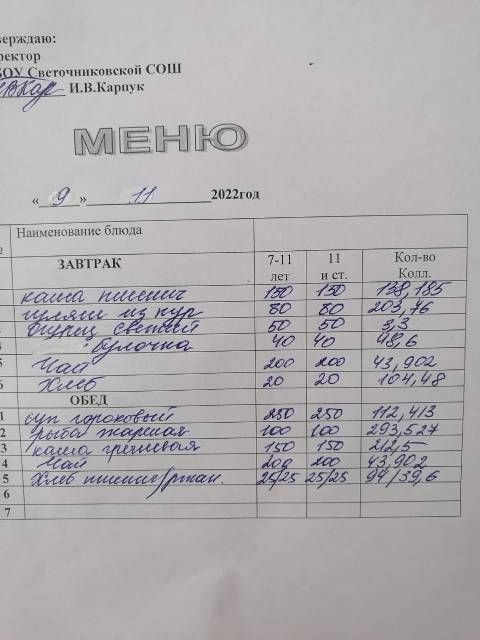 верждаю:
ректор
БОУ Светочниковской СОШ
И.В.Карпук
МЕНЮ
« 9 » 11 2022год
№ Наименование блюда
ЗАВТРАК 7-11 лет 11 и ст. Кол-во Колл.
каша пшенич 150 150 138,185
гуляш из кур 80 80 203,76
огурец свежий 50 50 3,3
булочка 40 40 48,6
5 Чай 200 200 43,902
6 Хлеб 20 20 104,48
ОБЕД
1 суп гороховый 250 250 112,413
2 рыба жареная 100 100 293,527
3 каша гречневая 150 150 212,5
4 Чай 200 200 43,902
5 Хлеб пшенич/ржан. 25/25 25/25 94/39,6
6
7